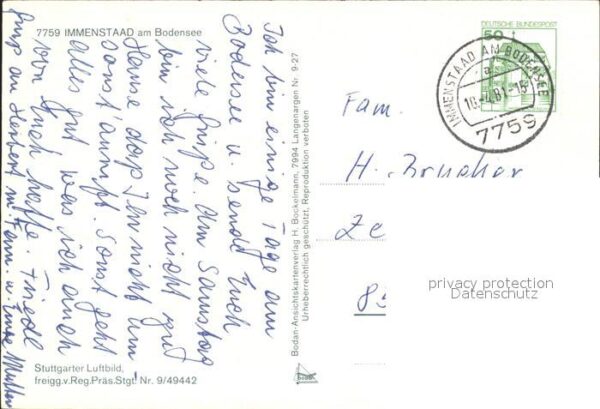 7759 IMMENSTAAD am Bodensee
Ich bin einige Tage am
Bodensee u. sende Euch
viele Grüße. Am Samstag
bin ich noch nicht gut
Hause daß Ihr nicht um-
sonst anruft. Sonst geht
alles gut was ich auch
von Euch hoffe Friedel
Gruß an Herbert m. Fam. u. Mutter
Stuttgarter Luftbild,
freigg.v.Reg.Präs.Stgt. Nr. 9/49442
Bodan-Ansichtskartenverlag H. Bockelmann, 7994 Langenargen Nr. 9-27
Urheberrechtlich geschützt, Reproduktion verboten
DEUTSCHE BUNDESPOST
50
IMMENSTAAD AM BODENSEE
a
81-15
7759
Fam.
H. Bruchar
Ze
8
privacy protection
Datenschutz